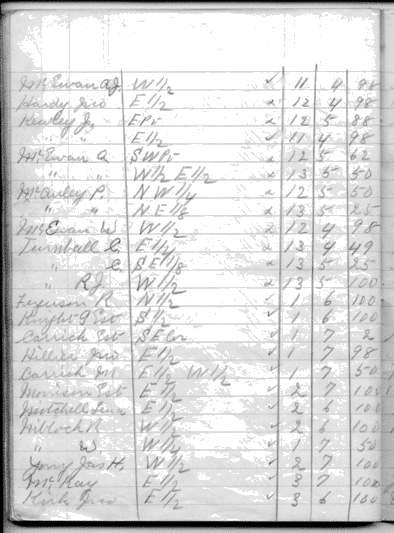 McEwan A.J. W 1/2 ✓ 11 4 98
Hardy Jno E 1/2 x 12 4 98
Kewley J. E Pt x 12 5 88
" " E 1/2 ✓ 11 4 98
McEwan A S W Pt x 12 5 62
" " W 1/2 E 1/2 x 13 5 50
McAuley P. N W 1/4 x 12 5 50
" " N E 1/8 x 13 5 25
McEwan W W 1/2 x 12 4 98
Turnbull C. E 1/4 x 13 4 49
" C. S E 1/8 x 13 5 25
" R J. W 1/2 x 13 5 100
Ferguson R N 1/2 ✓ 1 6 100
Knight G Est S 1/2 ✓ 1 6 100
Carrick Est S E Cor ✓ 1 7 2
Hillier Jno E 1/2 ✓ 1 7 98
Carrick M E 1/2 W 1/2 ✓ 1 7 50
Morrison Est E 1/2 ✓ 2 7 100
Mitchell E 1/2 ✓ 2 6 100
Niblock R W 1/2 ✓ 2 6 100
" W W 1/4 ✓ 1 7 50
Yong Jas H. W 1/2 ✓ 2 7 100
McKay E 1/2 ✓ 3 7 100
Kirk Jno E 1/2 ✓ 3 6 100